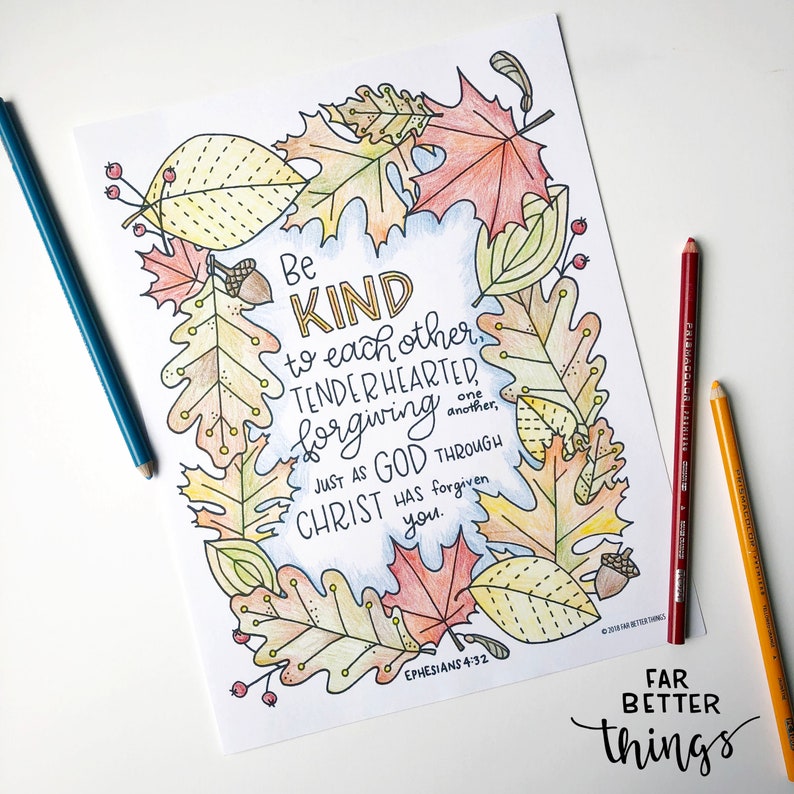 Be
KIND
to each other,
TENDERHEARTED,
forgiving one
another,
JUST AS GOD THROUGH
CHRIST HAS forgiven
you.
EPHESIANS 4:32
© 2018 FAR BETTER THINGS
PRISMACOLOR PREMIER
PRISMACOLOR
FAR
BETTER
things